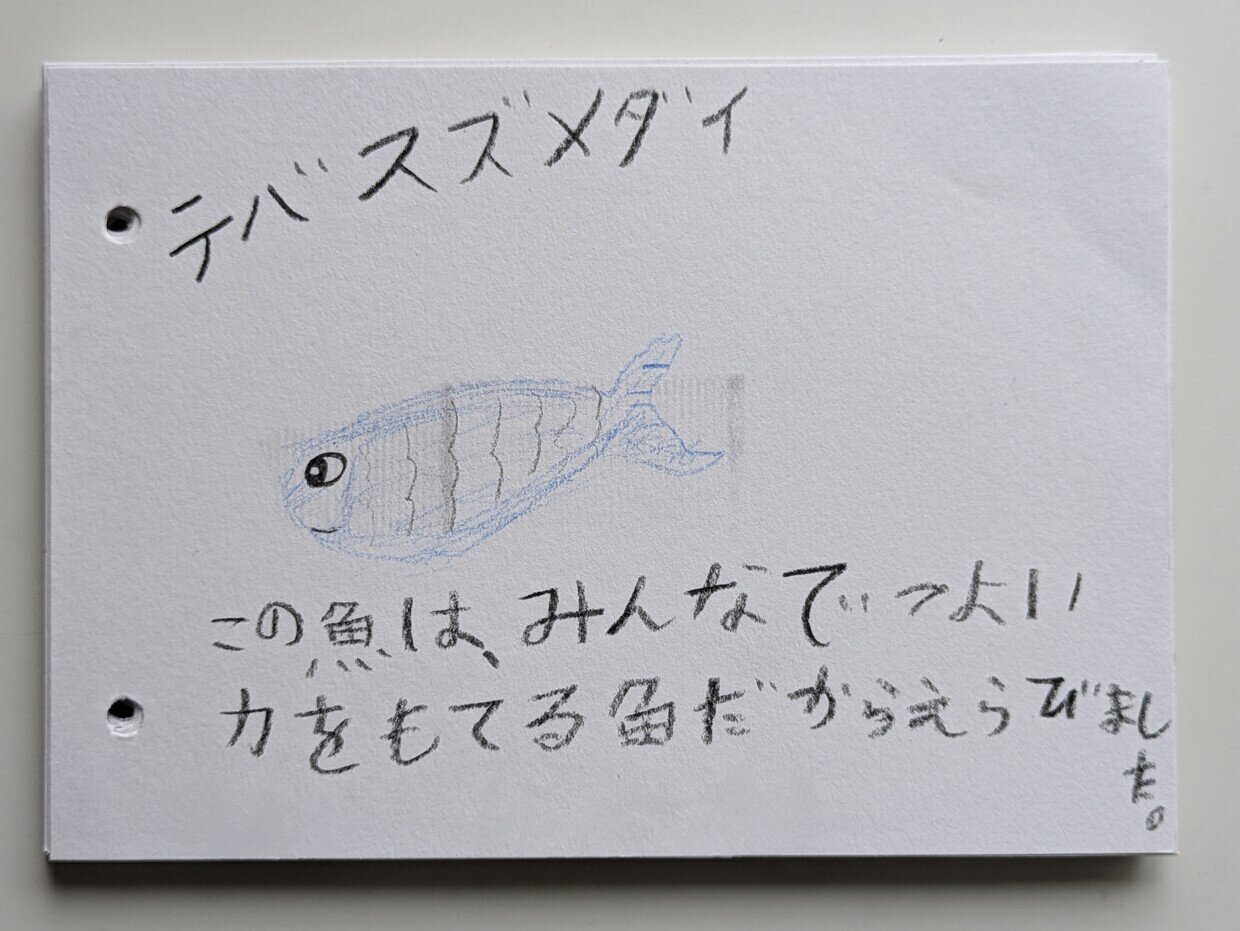 テバスズメダイ
この魚は、みんなでつよい
力をもてる魚だからえらびまし
た。